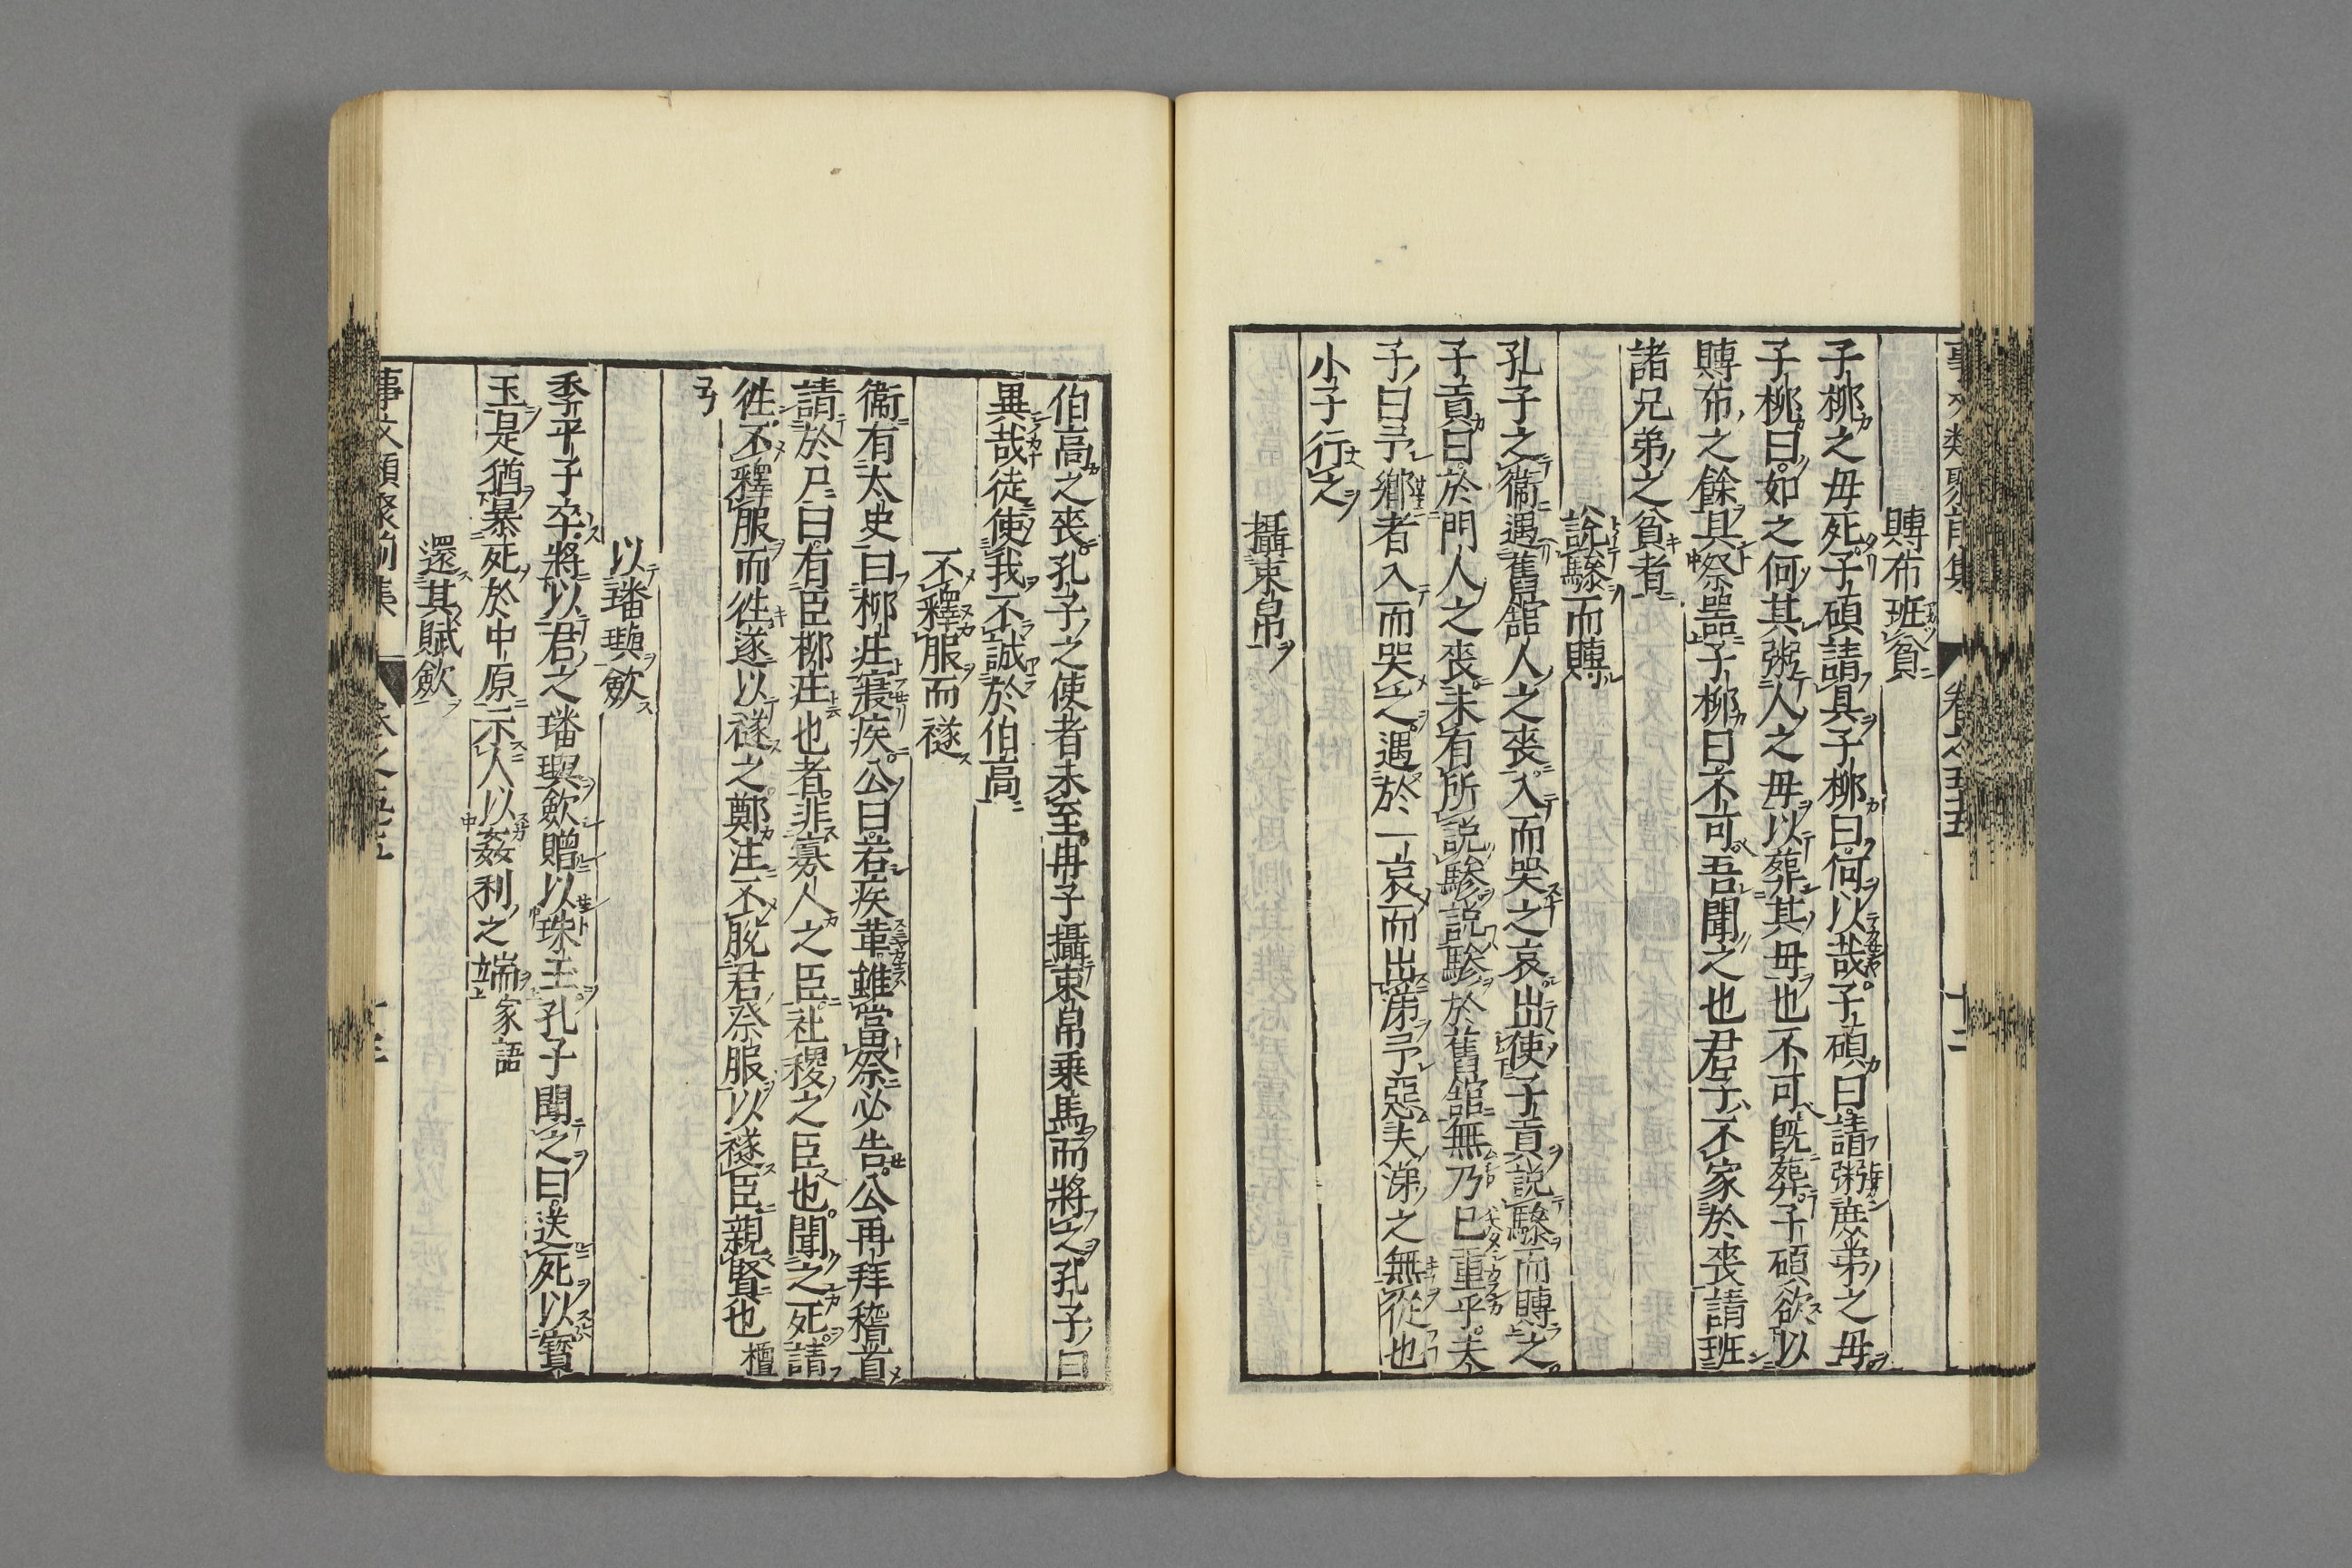 賻布班貧
子桞之毋死子碩請具子桞曰何以哉子碩曰請粥庻弟之毋
子桞曰如之何其粥人之毋以葬其毋也不可旣葬子碩欲以
賻布之餘具祭噐子桞曰不可吾聞之也君子不家於喪請班
諸兄弟之貧者
說驂而賻
孔子之衞遇舊舘人之喪入而哭之哀出使子貢説驂而賻之
子貢曰於門人之喪未有所説驂説驂於舊舘無乃已重乎夫
子曰予鄉者入而哭之遇於一哀而出涕予惡夫涕之無從也
小子行之
攝束帛
伯高之喪孔子之使者未至冉子攝束帛乗馬而將之孔子曰
異哉徒使我不誠於伯高
不釋服而襚
衞有太史曰柳莊寢疾公曰若疾革雖當祭必告公再拜稽首
請於尸曰有臣柳莊也者非寡人之臣社稷之臣也聞之死請
徃不釋服而徃遂以襚之鄭注不脫君祭服以襚臣親賢也檀
弓
以璠璵歛
季平子卒將以君之璠璵歛贈以珠玉孔子聞之曰送死以寳
玉是猶暴死於中原示人以姦利之端家語
還其賦歛